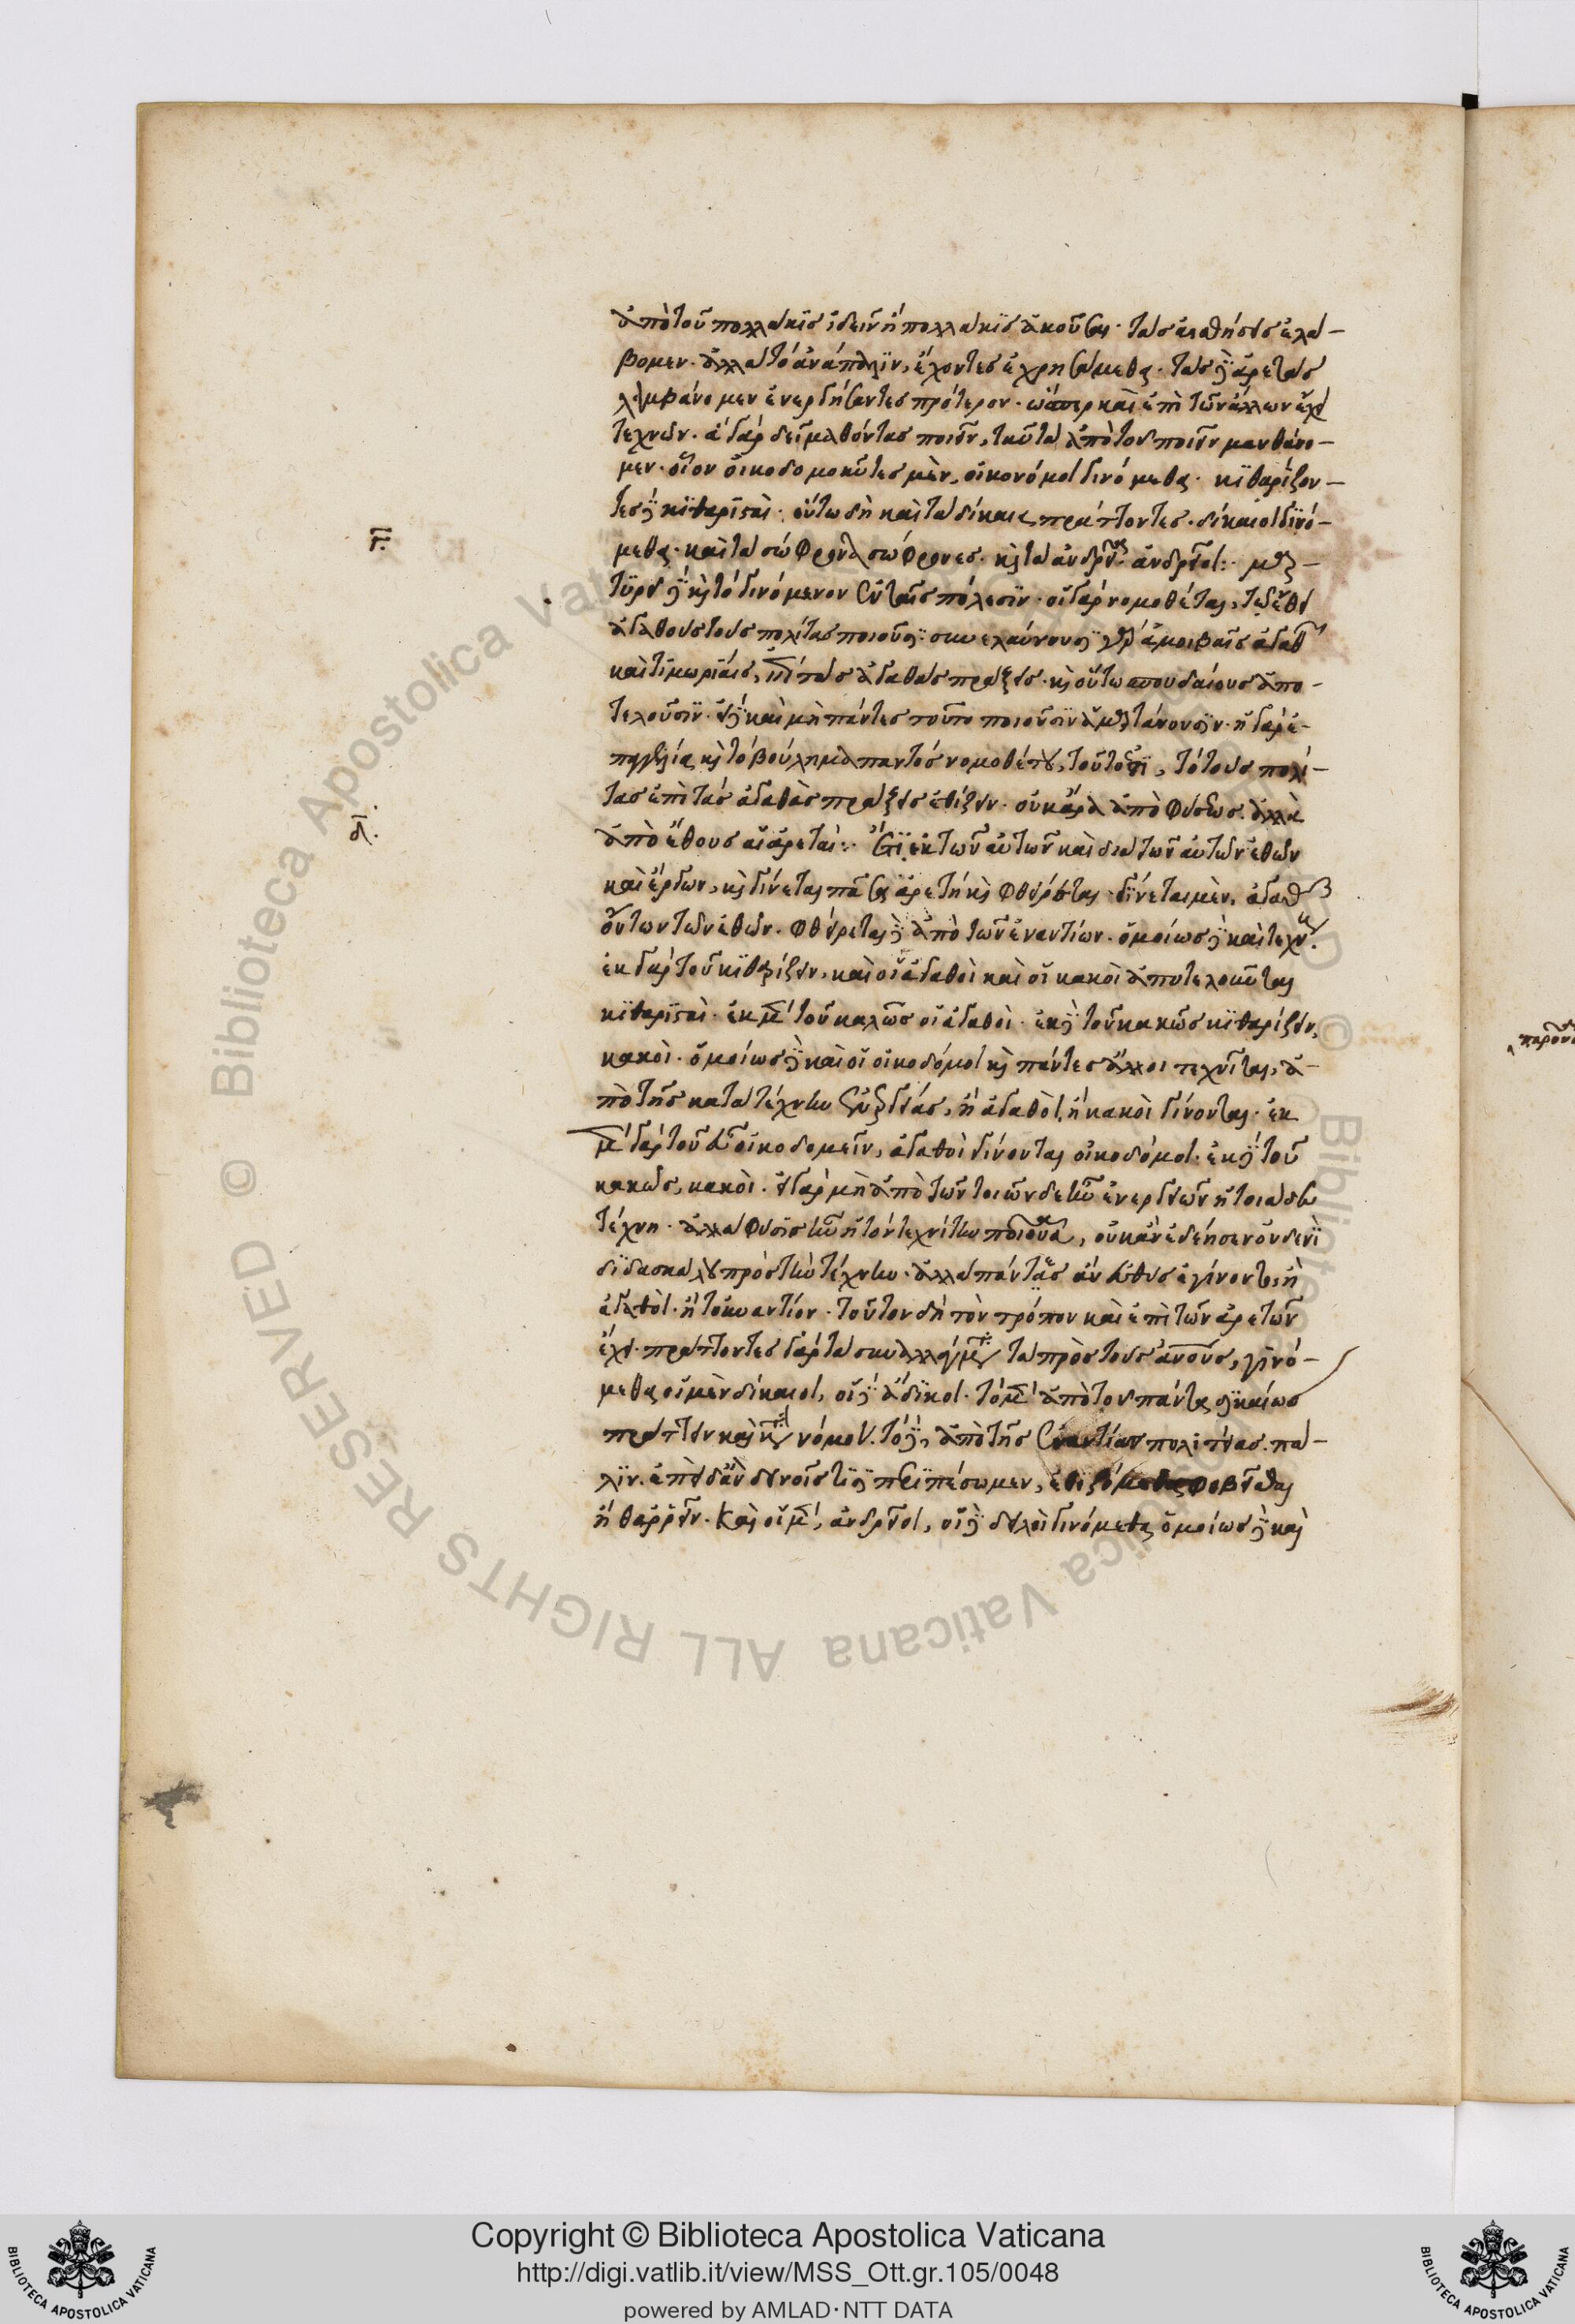 ἀπὸ τοῦ πολλακις ἰδεῖν ἢ πολλακις ἀκοῦσαι· τὰς αἰσθήσεις ἐλά-
βομεν· ἀλλὰ τὸ ἀνάπαλιν, ἔχοντες ἐχρησάμεθα· τὰς δὲ ἀρετὰς
λαμβάνομεν ἐνεργήσαντες πρότερον· ὥσπερ καὶ ἐπὶ τῶν ἄλλων ἔχει
τεχνῶν· ἃ γὰρ δεῖ μαθόντας ποιεῖν, ταῦτα ἀπὸ τοῦ ποιεῖν μανθάνο-
μεν· οἷον οἰκοδομοῦντες μὲν, οἰκονόμοι γινόμεθα· κιθαρίζον-
τες δὲ κιθαρισταὶ· οὕτω δὴ καὶ τὰ δίκαια πράττοντες· δίκαιοι γινό-
μεθα· καὶ τὰ σώφρονα σώφρονες· καὶ τὰ ἀνδρεῖα ἀνδρεῖοι:· μαρ-
τυρεῖ δὲ καὶ τὸ γινόμενον ἐν ταῖς πόλεσιν· οἱ γὰρ νομοθέται, τῷ ἔθει
ἀγαθοὺς τοὺς πολίτας ποιοῦσι· συνελαύνουσι γὰρ ἀμοιβαῖς ἀγαθ
καὶ τιμωρίαις, ἐπὶ τὰς ἀγαθὰς πράξεις· καὶ οὕτω σπουδαίους ἀπο-
τελοῦσιν· εἰ δὲ καὶ μὴ πάντες τοῦτο ποιοῦσιν ἁμαρτάνουσιν· ἡ γὰρ ἐ-
παγγελία καὶ τὸ βούλημα παντὸς νομοθέτου, τοῦτό ἐστι, τὸ τοὺς πολί-
τας ἐπὶ τὰς ἀγαθὰς πράξεις ἐθίζειν· οὐκ ἄρα ἀπὸ φύσεως. ἀλλὰ
ἀπὸ ἔθους αἱ ἀρεταὶ:· ἔτι ἐκ τῶν αὐτῶν καὶ διὰ τῶν αὐτῶν ἐθῶν
καὶ ἔργων, καὶ γίνεται πᾶσα ἀρετὴ καὶ φθείρεται· γίνεται μὲν, ἀγαθῶν
ὄντων τῶν ἐθῶν· φθείρεται δὲ ἀπὸ τῶν ἐναντίων· ὁμοίως δὲ καὶ τέχνη·
ἐκ γὰρ τοῦ κιθαρίζειν, καὶ οἱ ἀγαθοὶ καὶ οἱ κακοὶ ἀποτελοῦνται
κιθαρισταὶ· ἐκ μὲν τοῦ καλῶς οἱ ἀγαθοὶ· ἐκ δὲ τοῦ κακῶς κιθαρίζειν,
κακοὶ· ὁμοίως δὲ καὶ οἱ οἰκοδόμοι καὶ πάντες ἄλλοι τεχνῖται, ἀ-
πὸ τῆς κατὰ τέχνην ἐνεργείας, ἢ ἀγαθοὶ, ἢ κακοὶ γίνονται· ἐκ
μὲν γὰρ τοῦ εὖ οἰκοδομεῖν, ἀγαθοὶ γίνονται οἰκοδόμοι· ἐκ δὲ τοῦ
κακῶς, κακοὶ· εἰ γὰρ μὴ ἀπὸ τῶν τοιῶνδε ἦν ἐνεργειῶν ἡ τοιάδε
τέχνη· ἀλλὰ φύσις ἦν ἡ τὸν τεχνίτην ποιοῦσα, οὐκ ἂν ἐδέησεν οὐδενὶ
διδασκάλου πρὸς τὴν τέχνην· ἀλλὰ πάντες ἂν εὐθὺς ἐγίνοντο, ἢ
ἀγαθοὶ· ἢ τοὐναντίον· τοῦτον δὴ τὸν τρόπον καὶ ἐπὶ τῶν ἀρετῶν
ἔχει· πράττοντες γὰρ τὰ συναλλάγματα τὰ πρὸς τοὺς ἀνους, γινό-
μεθα οἱ μὲν δίκαιοι, οἱ δὲ ἄδικοι· τὸ μὲν ἀπὸ τοῦ πάντα δικαίως
πράττειν καὶ κατὰ νόμον. τὸ δὲ, ἀπὸ τῆς ἐναντίας πολιτείας. πά-
λιν. ἐπειδὰν δεινοῖς τισι περιπέσωμεν, ἐθιζόμεθα φοβεῖσθαι
ἢ θαρρεῖν. καὶ οἱ μὲν, ἀνδρεῖοι, οἱ δὲ δειλοὶ γινόμεθα ὁμοίως δὲ καὶ
Copyright © Biblioteca Apostolica Vaticana
http://digi.vatlib.it/view/MSS_Ott.gr.105/0048
powered by AMLAD·NTT DATA
BIBLIOTECA APOSTOLICA VATICANA
BIBLIOTECA APOSTOLICA VATICANA